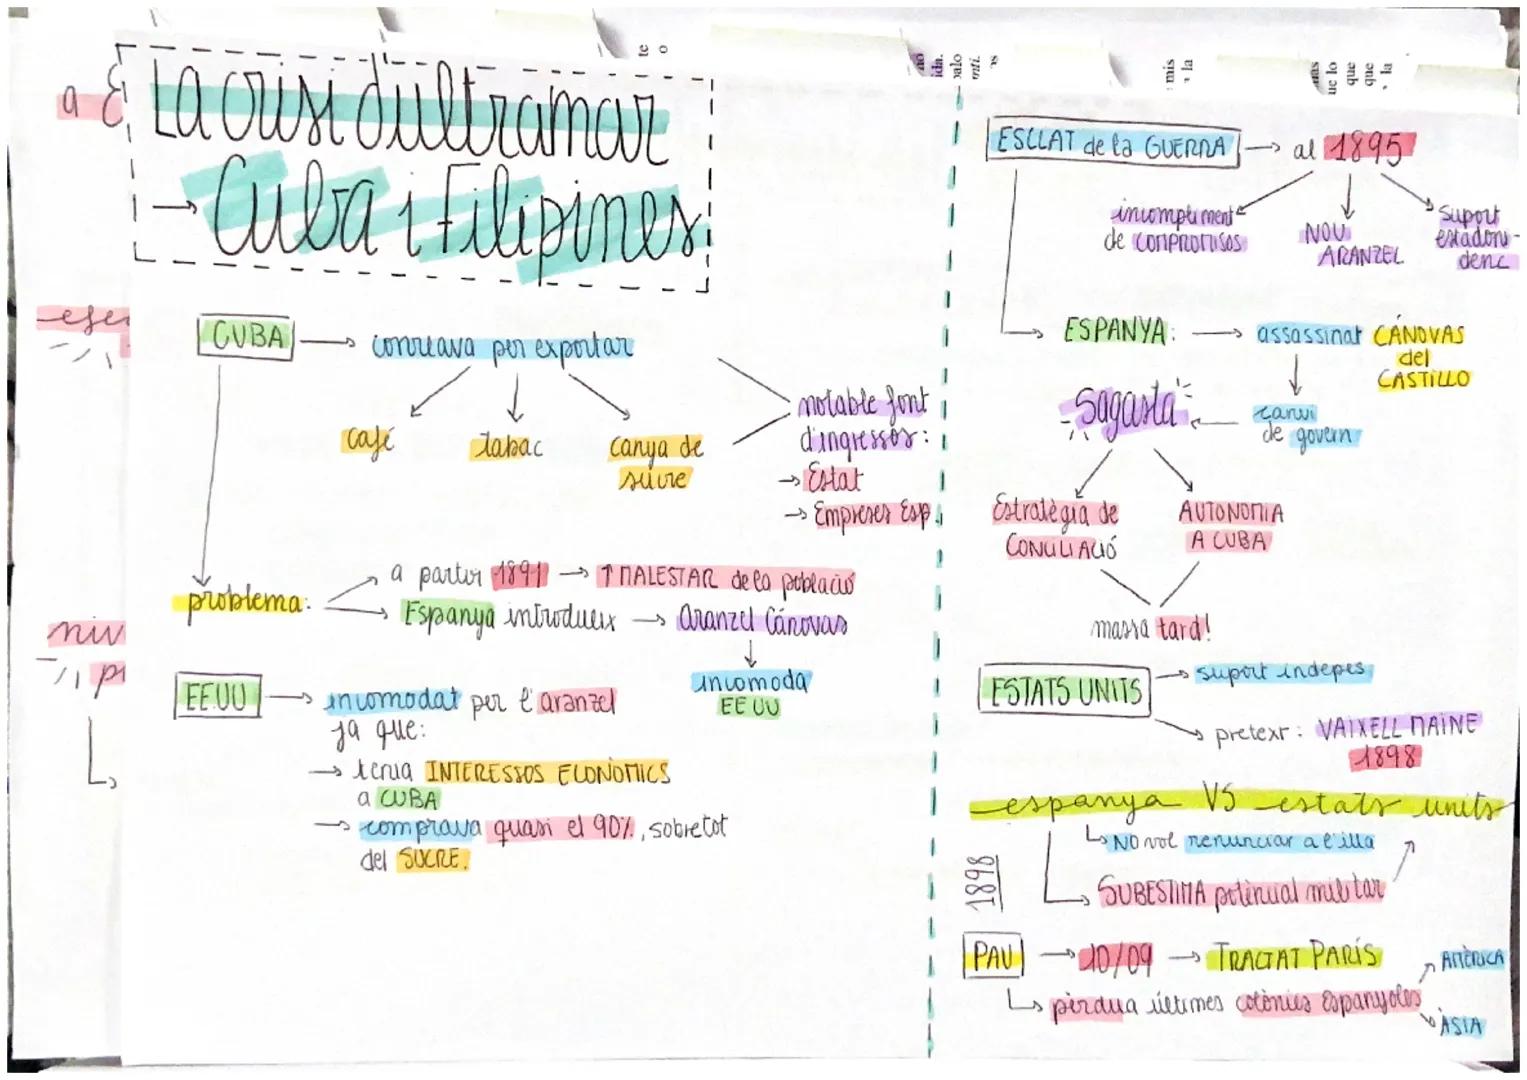 La crisi d'ultramar
→ Cuba i Filipines
CUBA → conreava per exportar
café
tabac
canya de
sucre
notable font
d'ingressos:
→ Estat
→ Empreses Esp.
problema:
a partir 1891 → ↑ MALESTAR de la població
Espanya introdueix → Aranzel Cánovas
incomoda
EE UU
EE.UU → incomodat per l'aranzel
ja que:
→ tenia INTERESSOS ECONÒMICS
a CUBA
→ comprava quasi el 90%, sobretot
del SUCRE.
ESCLAT de la GUERRA → al 1895
incompliment
de COMPROMISOS
NOU
ARANZEL
Suport
estadoni-
denc
ESPANYA: → assassinat CÁNOVAS
del
CASTILLO
canvi
de govern
Sagasta
Estratègia de
CONCILIACIÓ
AUTONOMIA
A CUBA
massa tard!
ESTATS UNITS → suport indepes
→ pretext: VAIXELL MAINE
1898
espanya VS estats units
NO vol renunciar a l'illa
SUBESTIMA potencial militar
1898
PAU → 10/09 → TRACTAT PARÍS
pèrdua últimes colònies espanyoles
AMÈRICA
ÀSIA
a E
niv